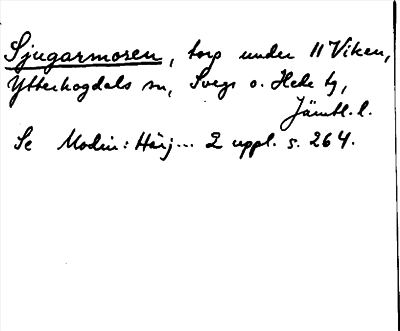 Sjugarmoren, torp under 11 Viken,
Ytterhogdals sn, Svegs o. Hede tg,
Jämtl. l.
Se Modin: Härj... 2 uppl. s. 264.